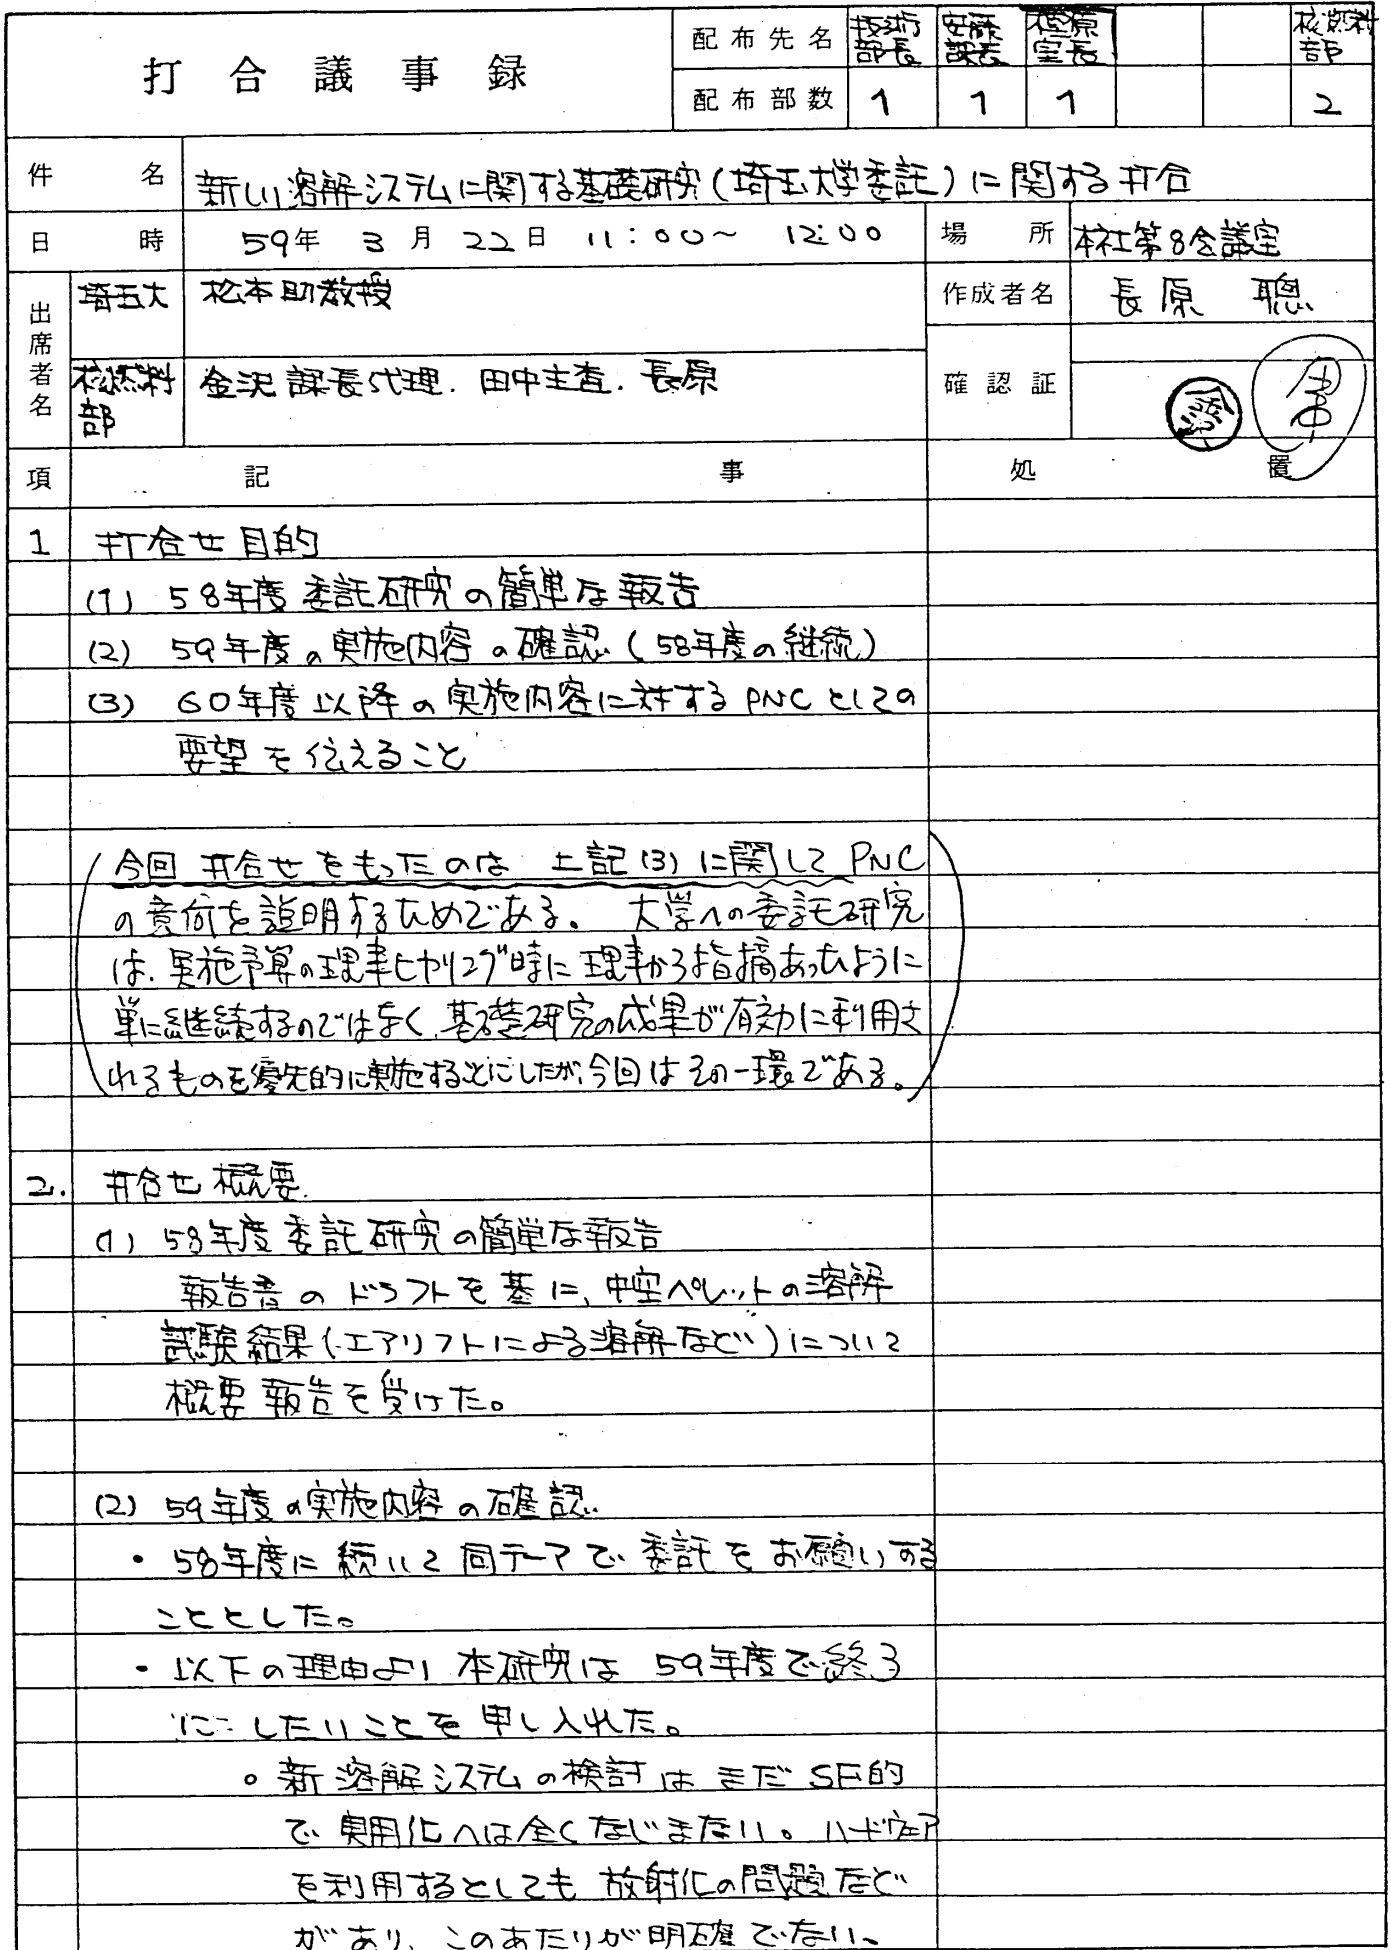 打合議事録
配布先名 技術部長 安藤課長 樫原室長 核燃料部
配布部数 1 1 1 2
件名 新しい溶解システムに関する基礎研究(埼玉大学委託)に関する打合
日時 59年 3月 22日 11:00~ 12:00 場所 本社第8会議室
出席者名 埼玉大 松本助教授 作成者名 長原 聰
核燃料部 金沢課長代理. 田中主査. 長原 確認証
項 記事 処置
1 打合せ目的
(1) 58年度委託研究の簡単な報告
(2) 59年度の実施内容の確認 (58年度の継続)
(3) 60年度以降の実施内容に対するPNCとしての
要望を伝えること
(今回打合せをもったのは 上記(3)に関してPNC
の意向を説明するためである。 大学への委託研究
は、実施予算の理事ヒヤリング時に理事から指摘あったように
単に継続するのではなく、基礎研究の成果が有効に利用さ
れるものを優先的に実施することにしたが、今回はその一環である。)
2. 打合せ概要
(1) 58年度委託研究の簡単な報告
報告書のドラフトを基に、中空ペレットの溶解
試験結果(エアリフトによる溶解など)について
概要報告を受けた。
(2) 59年度の実施内容の確認
・58年度に続いて同テーマで委託をお願いする
こととした。
・以下の理由より本研究は 59年度で終了
にしたいことを申し入れた。
○ 新溶解システムの検討はまだSF的
で実用化へは全くなじまない。ハードウェア
を利用するとしても放射化の問題など
があり、このあたりが明確でない。